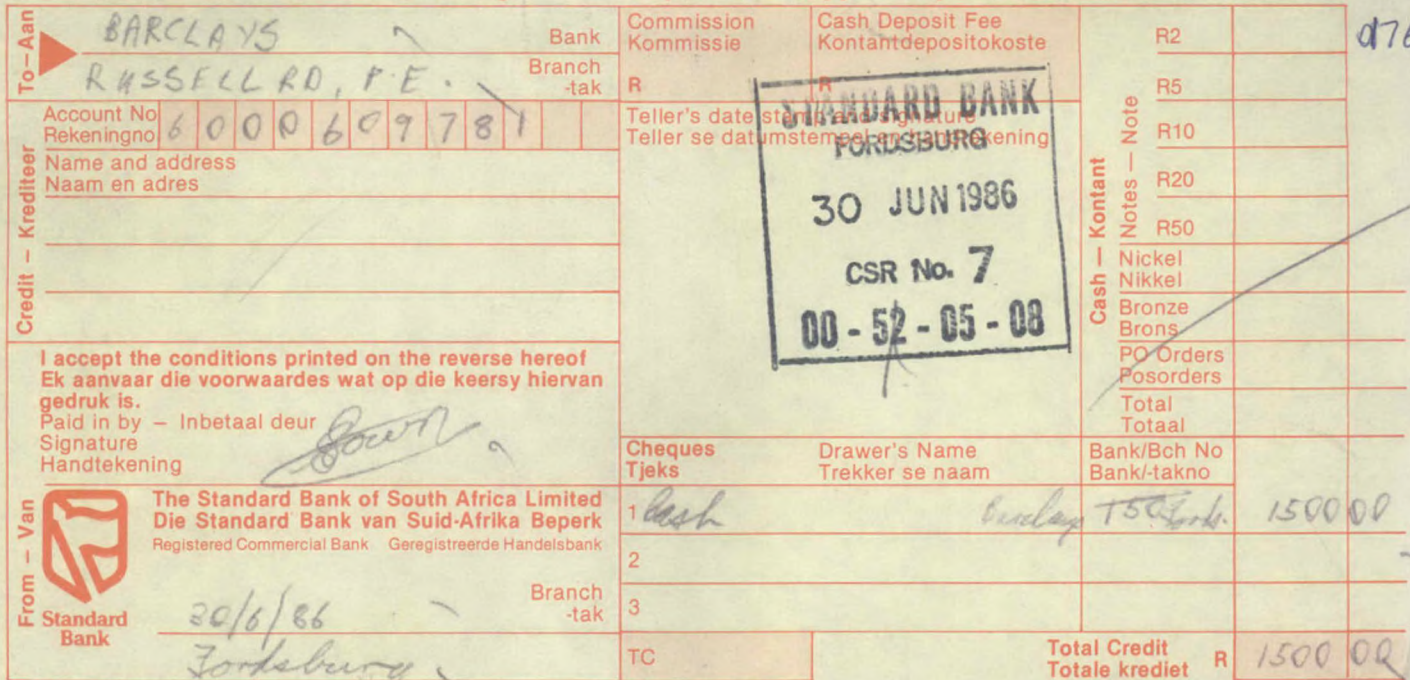 To – Aan
BARCLAYS Bank
RUSSELL RD, P.E. Branch
-tak
Credit – Krediteer
Account No
Rekeningno 6 0 0 0 6 0 9 7 8 1
Name and address
Naam en adres
I accept the conditions printed on the reverse hereof
Ek aanvaar die voorwaardes wat op die keersy hiervan
gedruk is.
Paid in by – Inbetaal deur
Signature
Handtekening
From – Van
The Standard Bank of South Africa Limited
Die Standard Bank van Suid-Afrika Beperk
Registered Commercial Bank Geregistreerde Handelsbank
Standard
Bank
Branch
-tak
30/6/86
Fordsburg
Commission
Kommissie
R
Cash Deposit Fee
Kontantdepositokoste
R
Teller's date stamp and signature
Teller se datumstempel en handtekening
STANDARD BANK
FORDSBURG
30 JUN 1986
CSR No. 7
00 - 52 - 05 - 08
Cash — Kontant
Notes — Note
R2
R5
R10
R20
R50
Nickel
Nikkel
Bronze
Brons
PO Orders
Posorders
Total
Totaal
Cheques
Tjeks
Drawer's Name
Trekker se naam
Bank/Bch No
Bank/-takno
1 Cash Barclays 1500 00
2
3
TC
Total Credit
Totale krediet R 1500 00